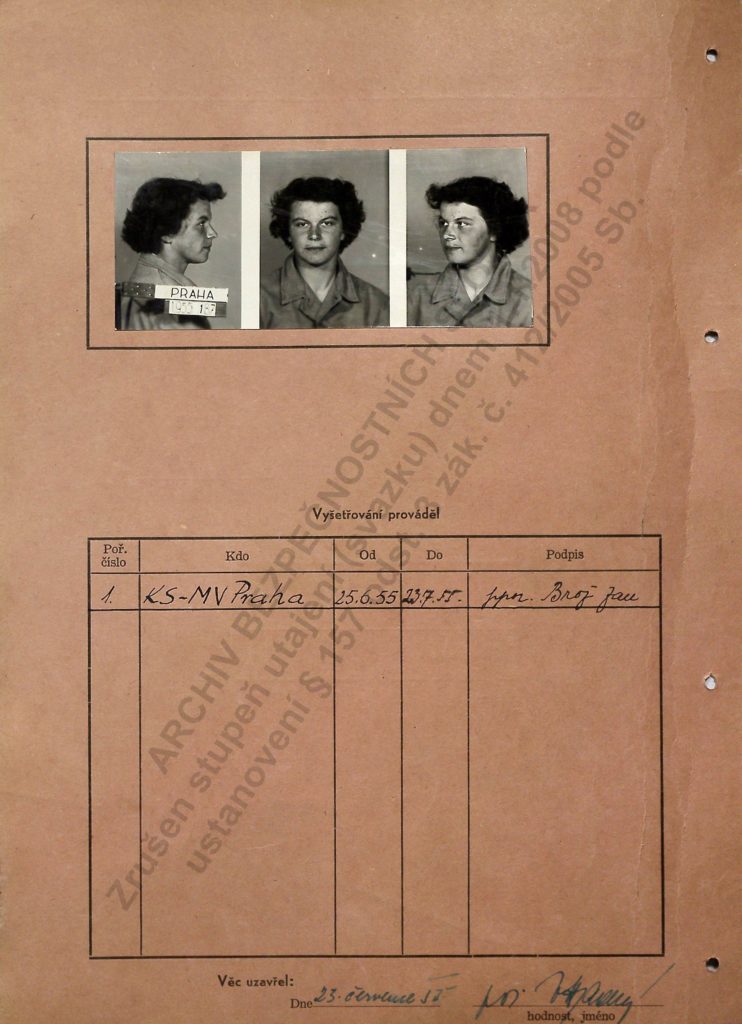 PRAHA
1955 187
Vyšetřování prováděl
Poř. číslo Kdo Od Do Podpis
1. KS-MV Praha 25.6.55 23.7.55. ppor. Brož Jan
Věc uzavřel:
Dne 23. července 55 por.
hodnost, jméno
ARCHIV BEZPEČNOSTNÍCH
Zrušen stupeň utajení (svazku) dnem 2008 podle
ustanovení § 157 odst. 8 zák. č. 412/2005 Sb.